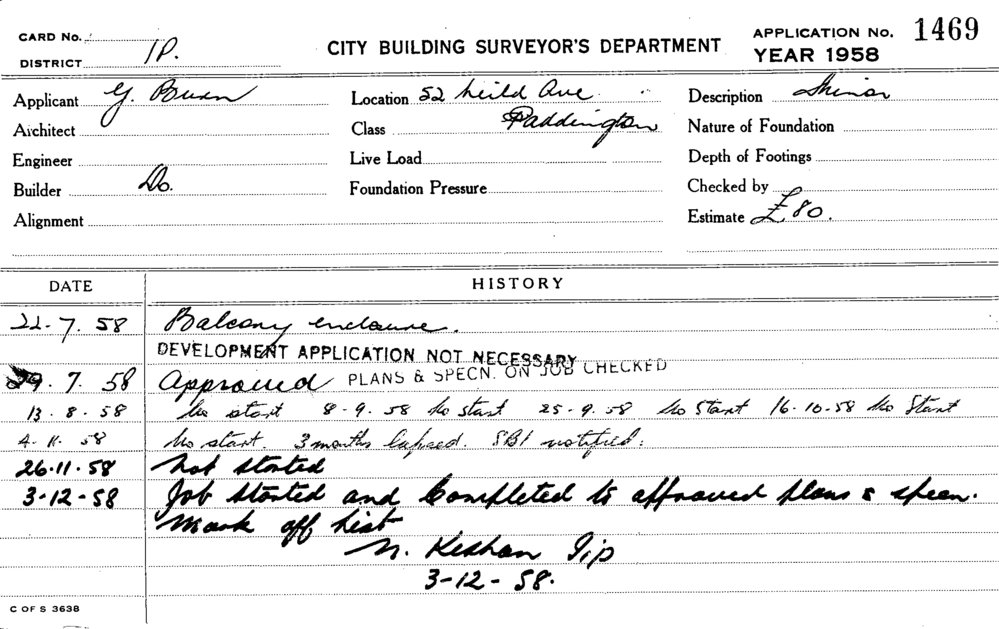 CARD No.
DISTRICT 1P.
CITY BUILDING SURVEYOR'S DEPARTMENT
APPLICATION No. 1469
YEAR 1958
Applicant G. Buxn
Location 52 Neild Ave
Description Minor
Architect
Class Paddington
Nature of Foundation
Engineer
Live Load
Depth of Footings
Builder Do.
Foundation Pressure
Checked by
Alignment
Estimate £80.
DATE HISTORY
22. 7. 58 Balcony enclosure.
DEVELOPMENT APPLICATION NOT NECESSARY
29. 7. 58 Approved PLANS & SPECN. ON JOB CHECKED
13. 8. 58 No start 8-9. 58 No start 25-9. 58 No Start 16-10-58 No Start
4. 11. 58 No start. 3 months lapsed. SBI notified.
26.11.58 Not started
3-12-58 Job Started and Completed to approved plans & specn.
Mark off List
N. Keshan
3-12-58.
C OF S 3638